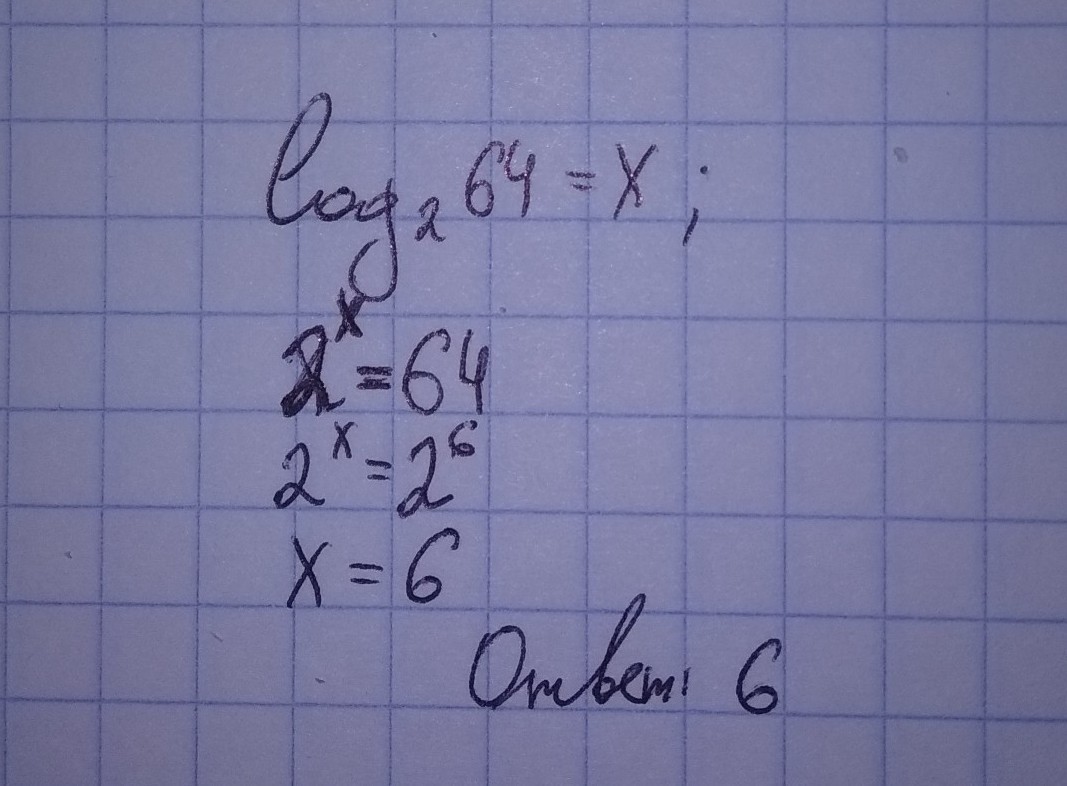 log₂ 64 = x ;
2ˣ = 64
2ˣ = 2⁶
x = 6
Ответ: 6